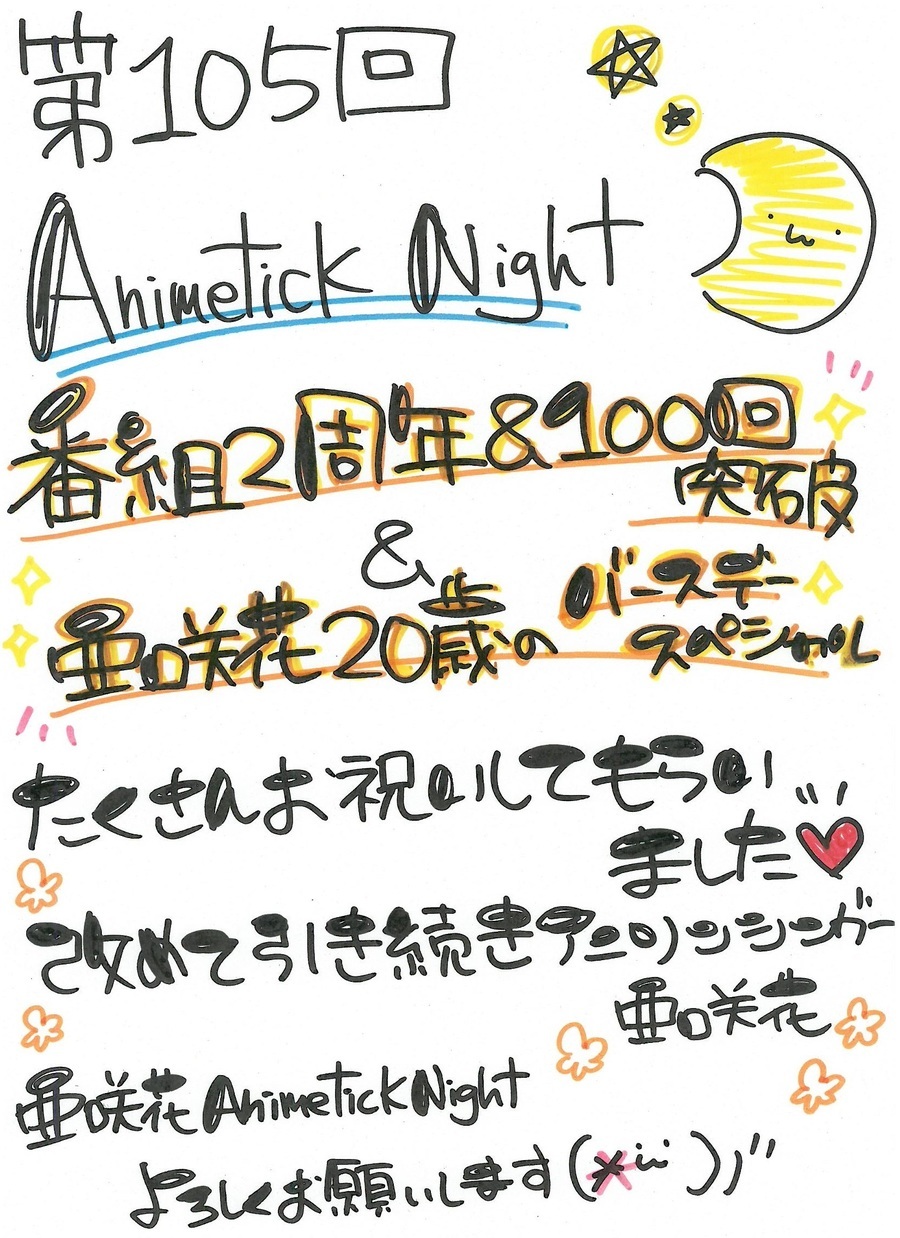 第105回
Animetick Night
番組2周年&100回
突破
&
亜咲花20歳の バースデー
スペシャル
たくさんお祝いしてもらい
ました♥
改めて引き続きアニソンシンガー
亜咲花
亜咲花AnimetickNight
よろしくお願いします(*¨)ノ"